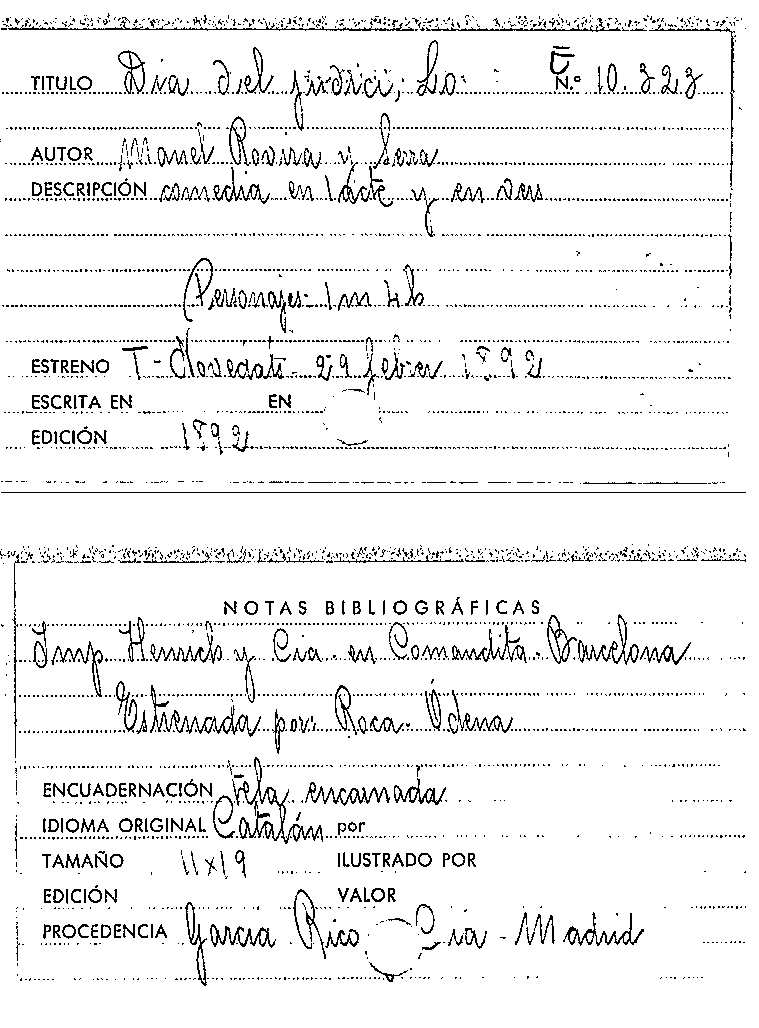 TITULO Dia del judici, Lo N.º 10.323
AUTOR Manel Rovira y Serra
DESCRIPCIÓN comedia en 1 acte y en vers
Personajes - 1 m 4 h
ESTRENO T - Novedats - 29 febrer 1892
ESCRITA EN EN
EDICIÓN 1892
NOTAS BIBLIOGRÁFICAS
Imp. Henrich y Cia - en Comandita - Barcelona
Estrenada por: Roca - Ódena
ENCUADERNACIÓN tela encarnada
IDIOMA ORIGINAL Catalán por
TAMAÑO 11x19 ILUSTRADO POR
EDICIÓN VALOR
PROCEDENCIA Garcia Rico Cia - Madrid